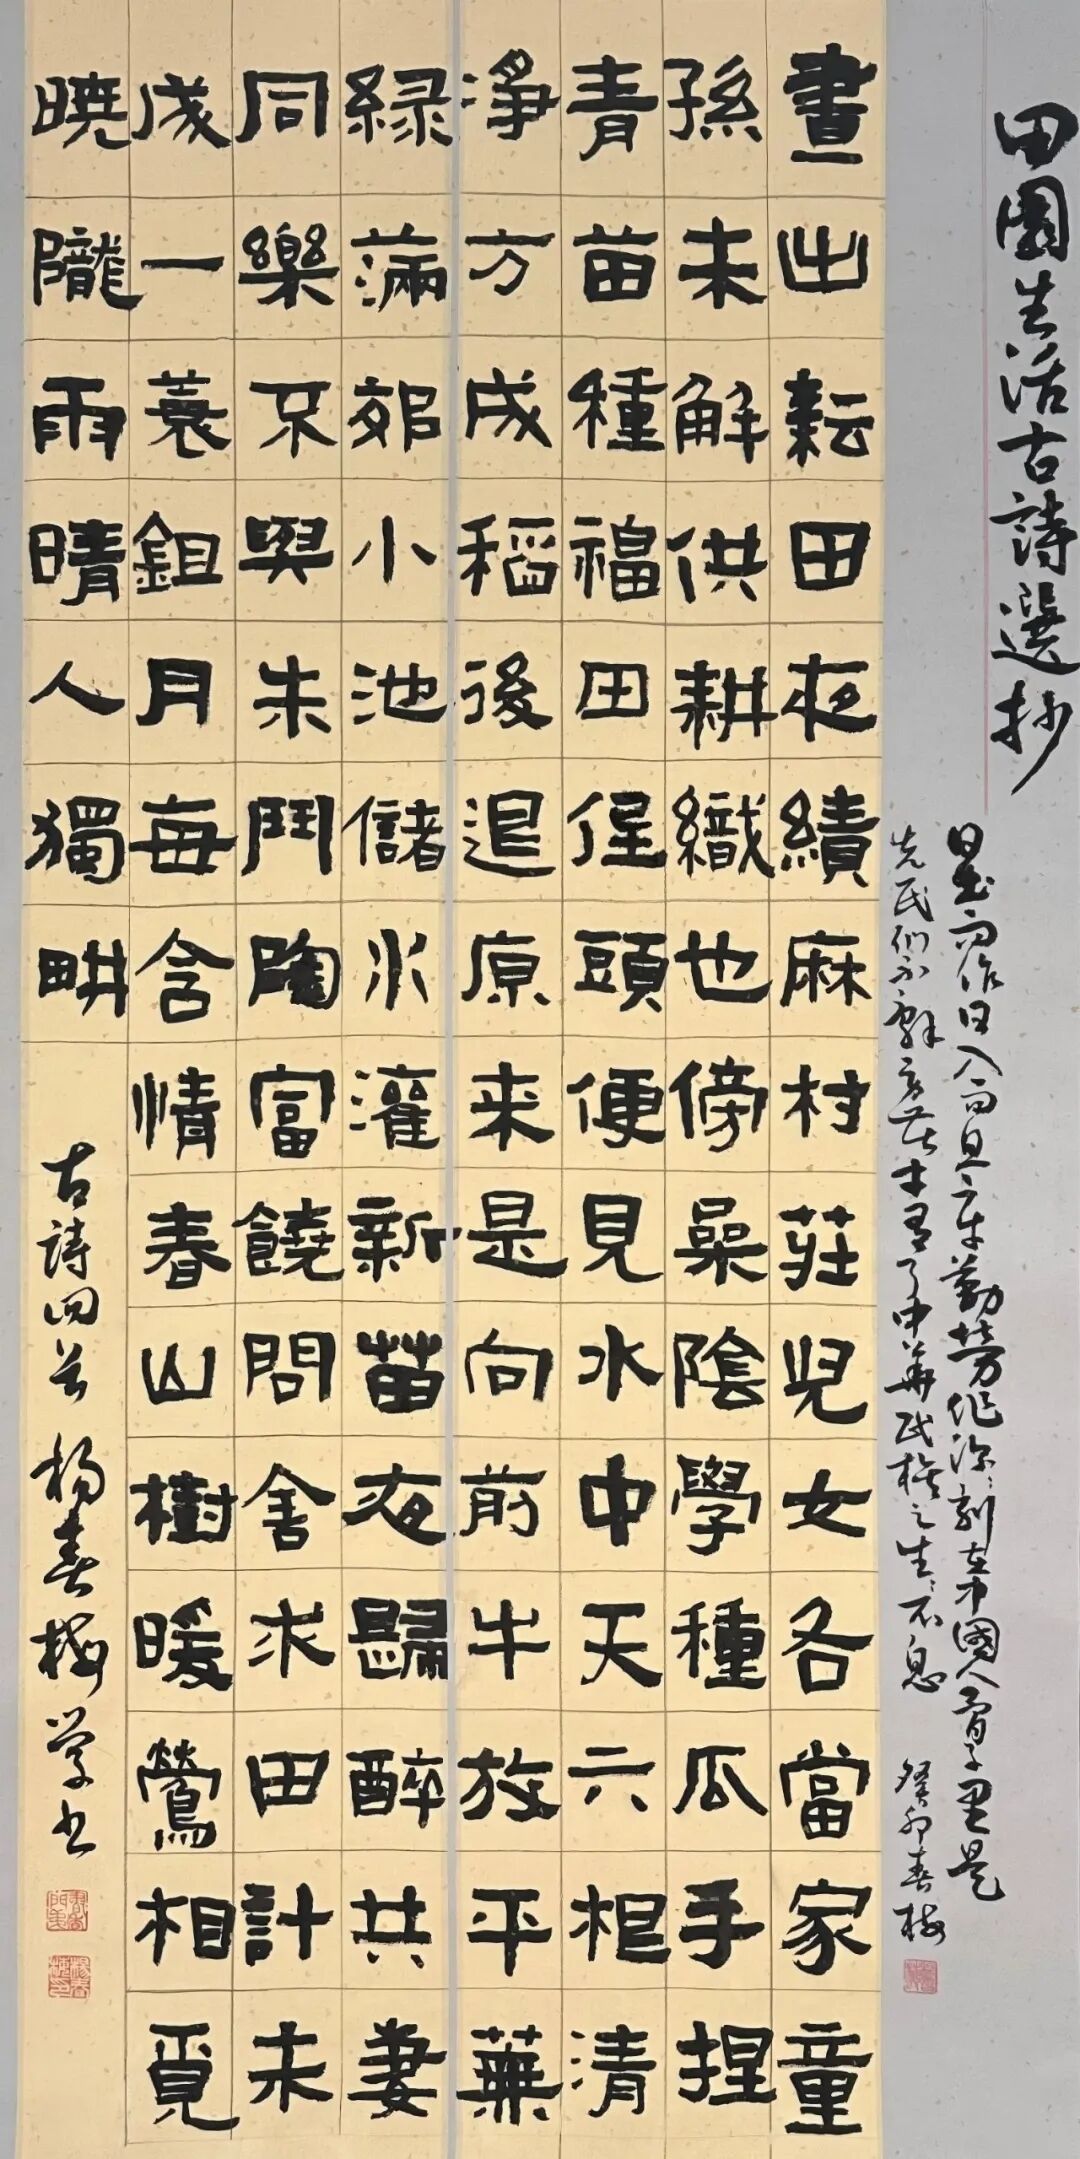 田園生活古詩選抄
日出而作日入而息
勤勞
刻在中國人骨子里是
先民们不辞
中華民族之生生不息
癸卯春梅
晝出耘田夜績麻村莊兒女各當家童
孫未解供耕織也傍桑陰學種瓜手捏
青苗種福田低頭便見水中天六根清
淨方成稻後退原来是向前牛放平蕪
緑滿郊小池儲水灌新苗夜歸醉共妻
同樂不與朱門闘富饒問舍求田計未
成一蓑鉏月每含情春山樹暖鶯相覓
曉隴雨晴人獨畊
古詩四首 楊春梅學书